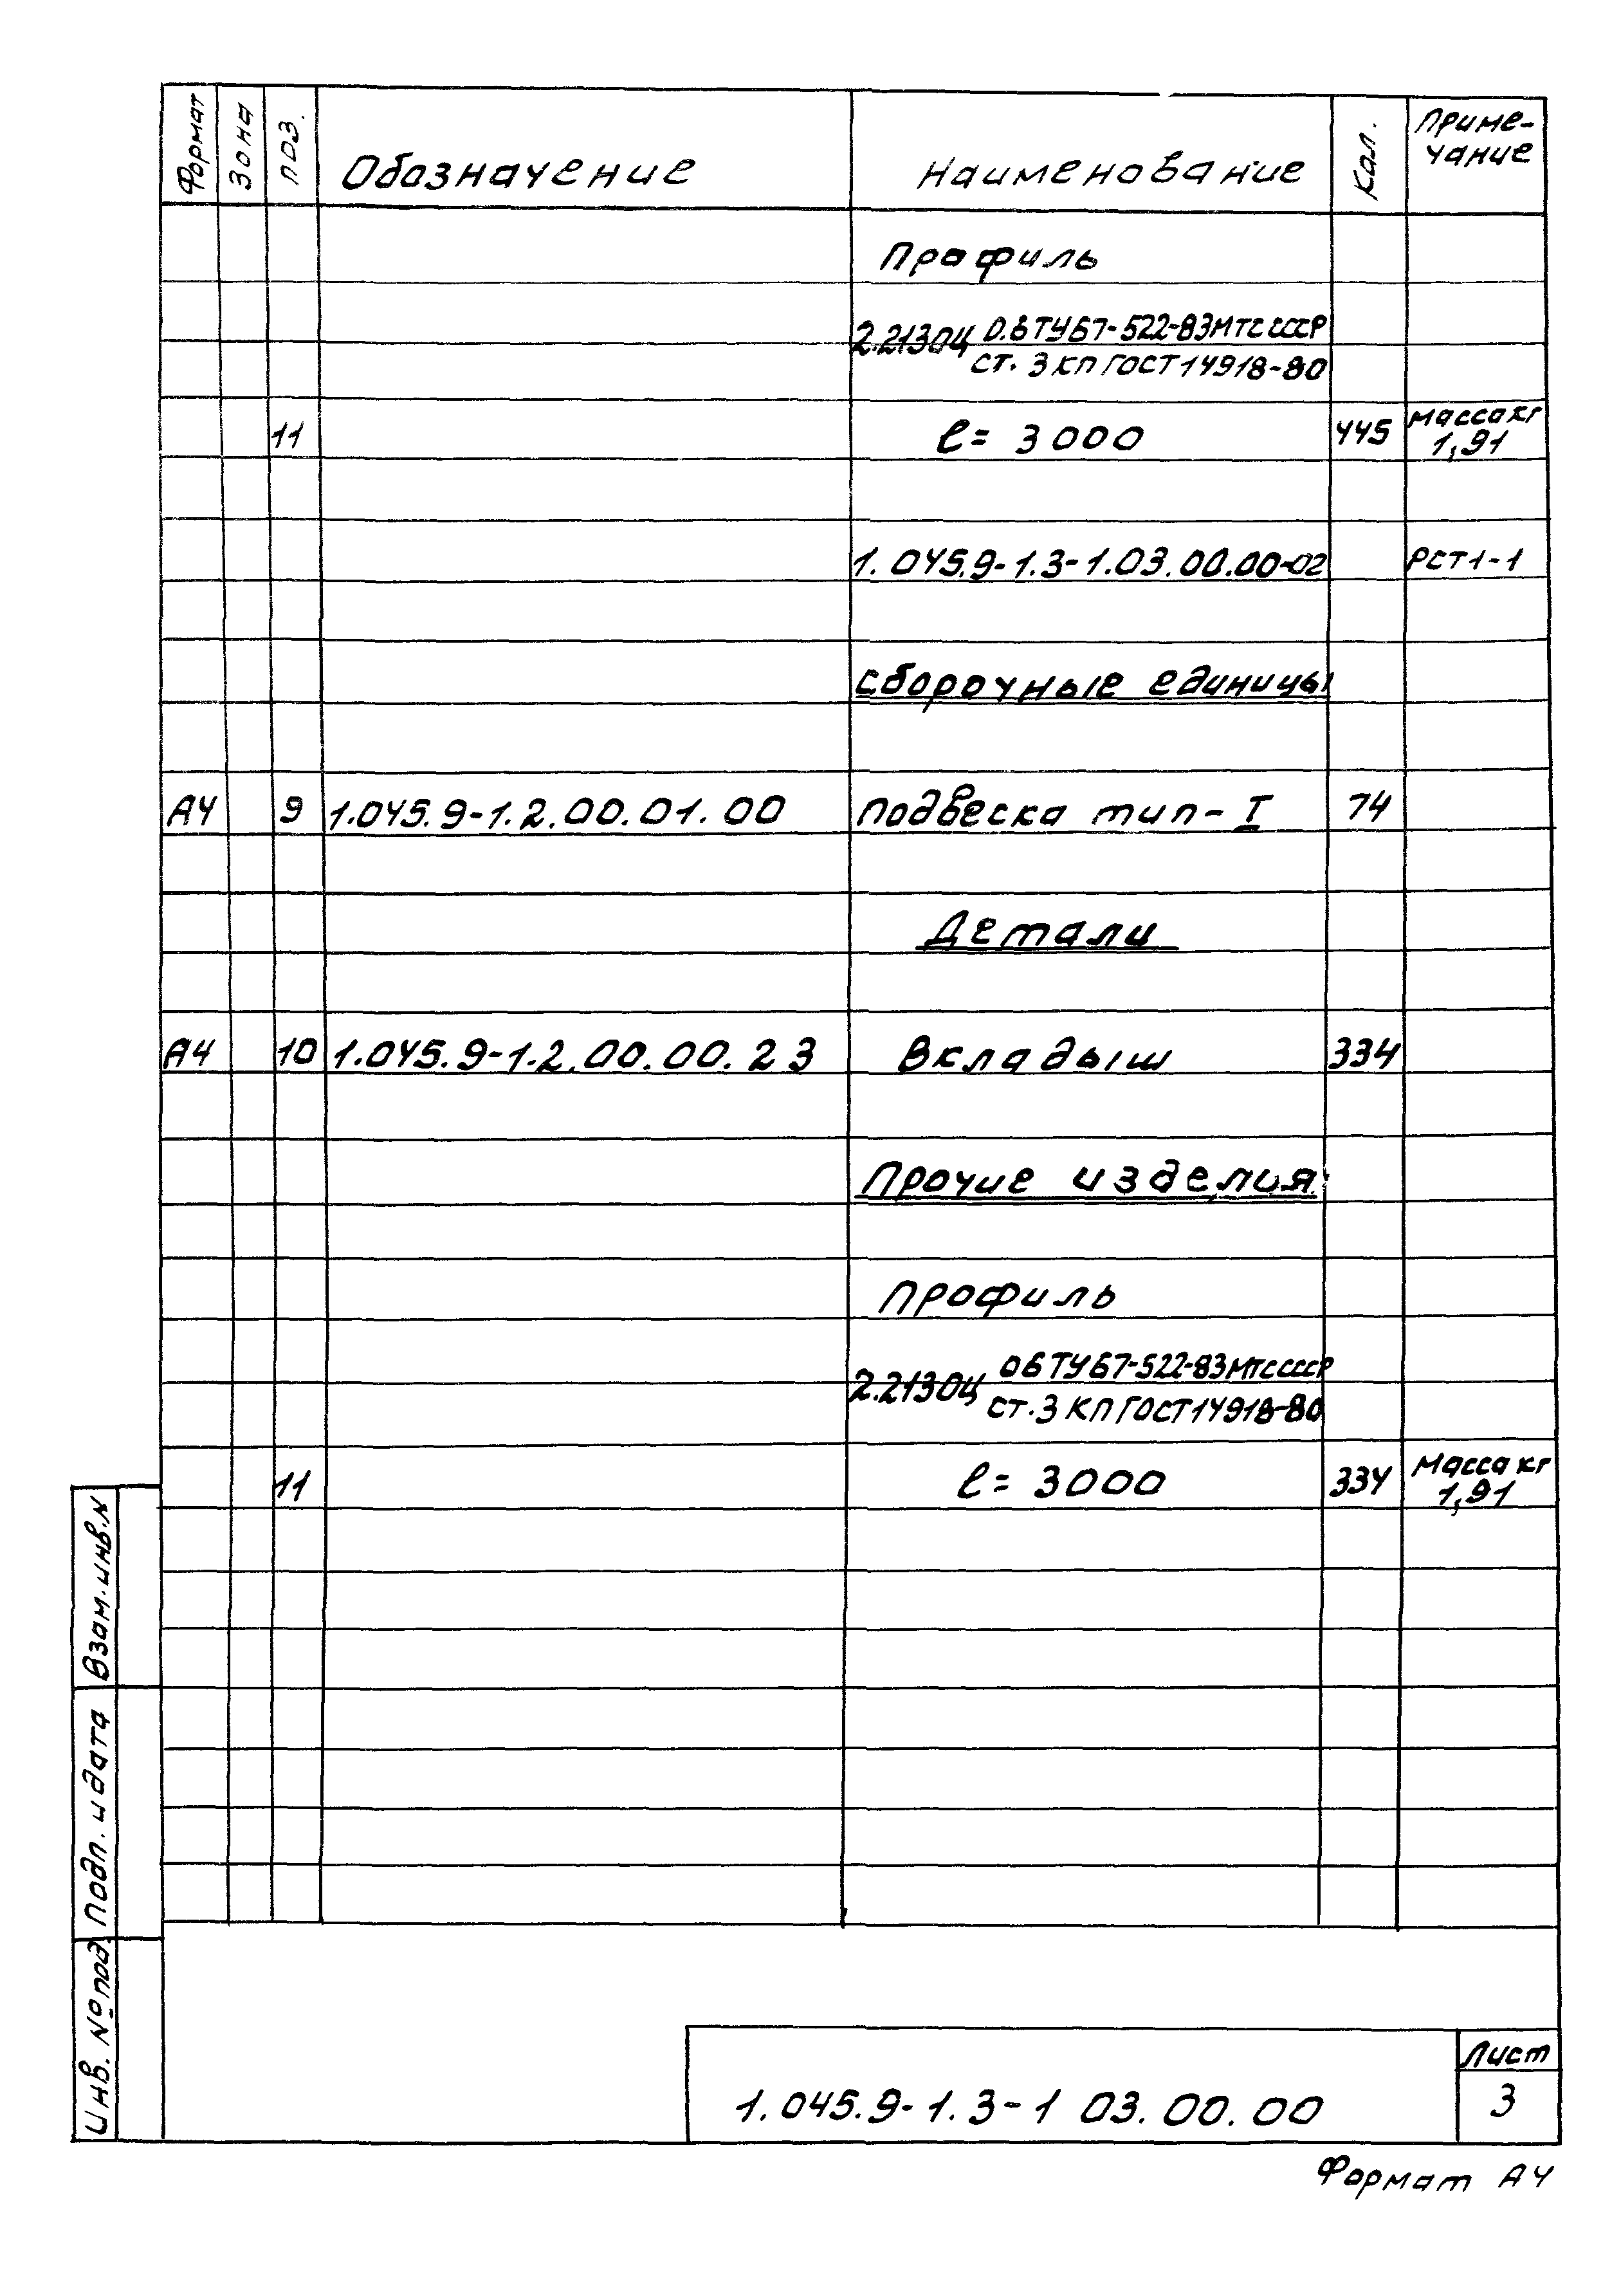 Формат Зона поз. Обозначение Наименование Кол. Приме-
чание
Профиль
2.21304 0.6 ТУ67-522-83МТС СССР
ст. 3 кп ГОСТ 14918-80
11 ℓ= 3000 445 масса кг
1,91
1.045.9-1.3-1.03.00.00-02 РСТ1-1
сборочные единицы
А4 9 1.045.9-1.2.00.01.00 подвеска тип-I 74
Детали
А4 10 1.045.9-1.2.00.00.23 Вкладыш 334
Прочие изделия
Профиль
2.21304 06 ТУ67-522-83МТС СССР
ст. 3 КП ГОСТ 14918-80
11 ℓ= 3000 334 Масса кг
1,91
Взам. инв. N
Подп. и дата
Инв. № под.
1.045.9-1.3-1 03.00.00
Лист
3
Формат А4